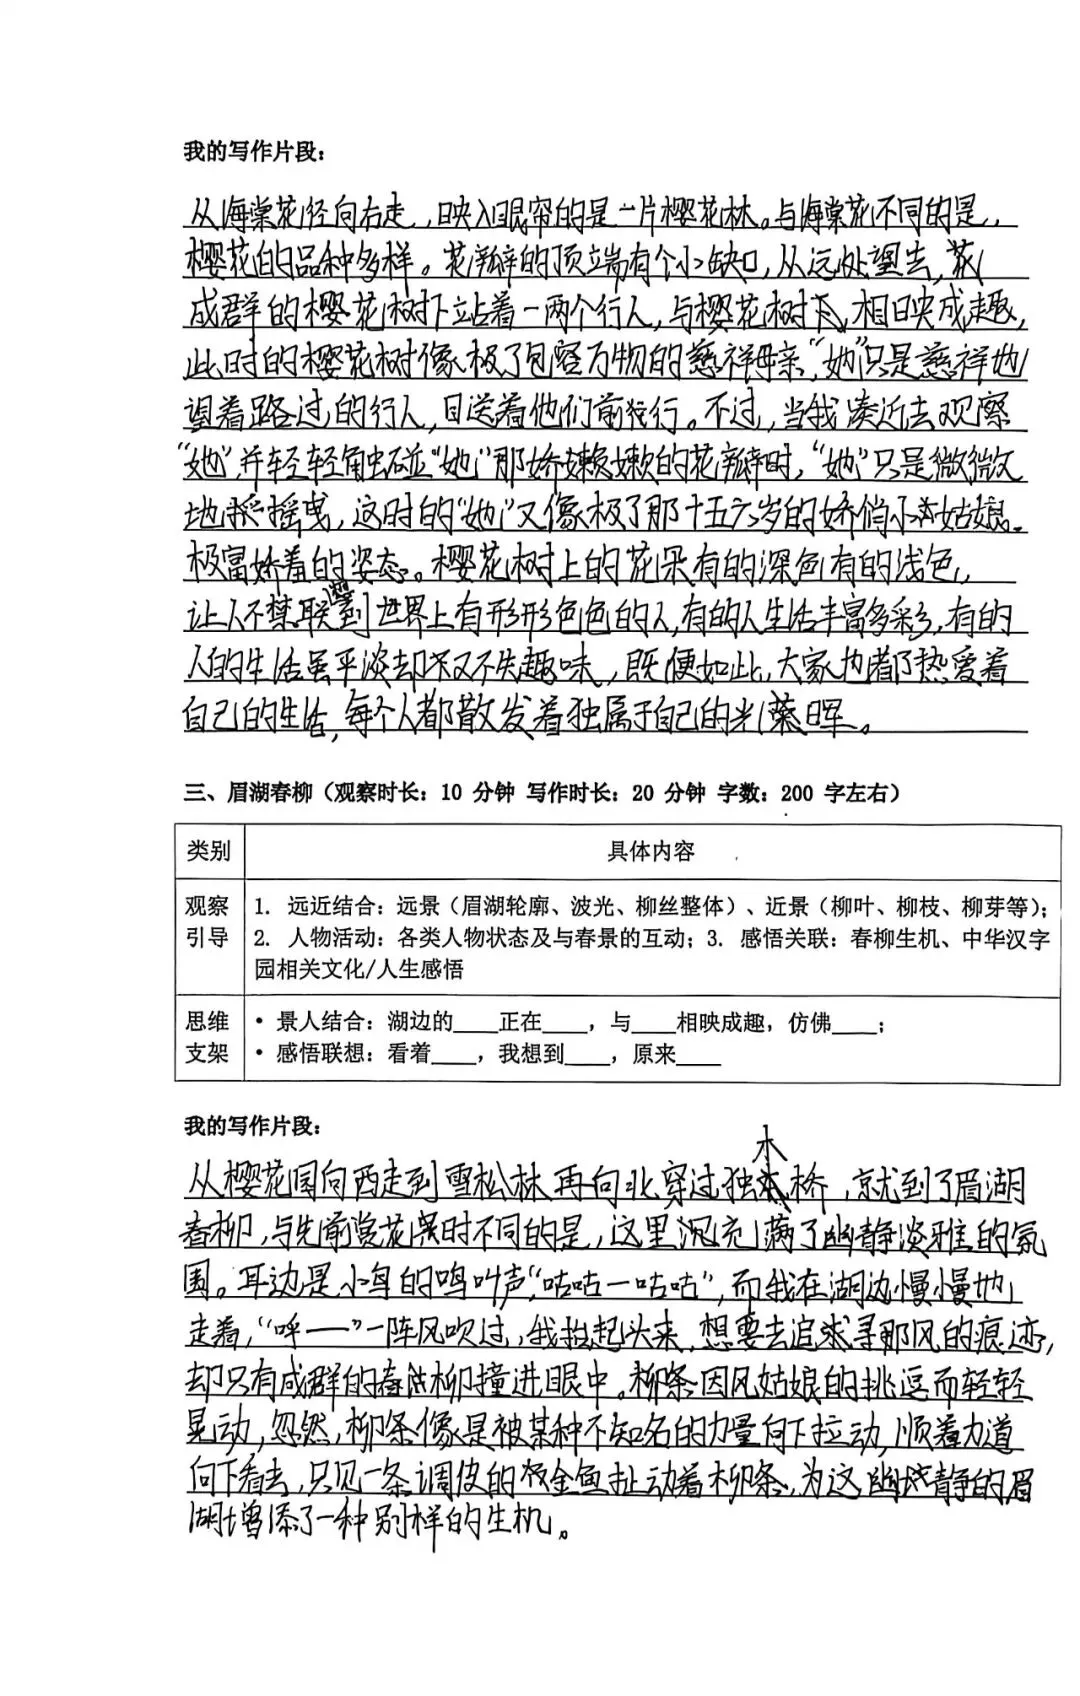 我的写作片段：
从海棠花径向右走，映入眼帘的是一片樱花林。与海棠花不同的是，
樱花的品种多样。花瓣的顶端有个小缺口，从远处望去，
成群的樱花树下站着一两个行人，与樱花树相映成趣，
此时的樱花树像极了包容万物的慈祥母亲，“她”只是慈祥地
望着路过的行人，目送着他们前行。不过，当我凑近去观察
“她”，并轻轻触碰“她”那娇嫩嫩的花瓣时，“她”只是微微
地摇曳，这时的“她”又像极了那十五六岁的娇俏小姑娘。
极富娇羞的姿态。樱花树上的花朵有的深色有的浅色，
让人不禁联想到世界上有形形色色的人，有的人生活丰富多彩，有的
人的生活虽平淡却又不失趣味，既便如此，大家也都热爱着
自己的生活，每个人都散发着独属于自己的光辉。
三、眉湖春柳（观察时长：10 分钟 写作时长：20 分钟 字数：200 字左右）
类别 具体内容
观察引导 1. 远近结合：远景（眉湖轮廓、波光、柳丝整体）、近景（柳叶、柳枝、柳芽等）；
2. 人物活动：各类人物状态及与春景的互动；3. 感悟关联：春柳生机、中华汉字
园相关文化/人生感悟
思维支架 • 景人结合：湖边的____正在____，与____相映成趣，仿佛____；
• 感悟联想：看着____，我想到____，原来____
我的写作片段：
从樱花园向西走到雪松林再向北穿过独木桥，就到了眉湖
春柳，与先前赏花时不同的是，这里充满了幽静淡雅的氛
围。耳边是小鸟的鸣叫声，“咕咕—咕咕”，而我在湖边慢慢地
走着，“呼——”一阵风吹过，我抬起头来，想要去追寻那风的痕迹，
却只有成群的春柳撞进眼中。柳条因风姑娘的挑逗而轻轻
晃动，忽然，柳条像是被某种不知名的力量向下拉动，顺着力道
向下看去，只见一条调皮的金鱼扯动着柳条，为这幽静的眉
湖增添了一种别样的生机。